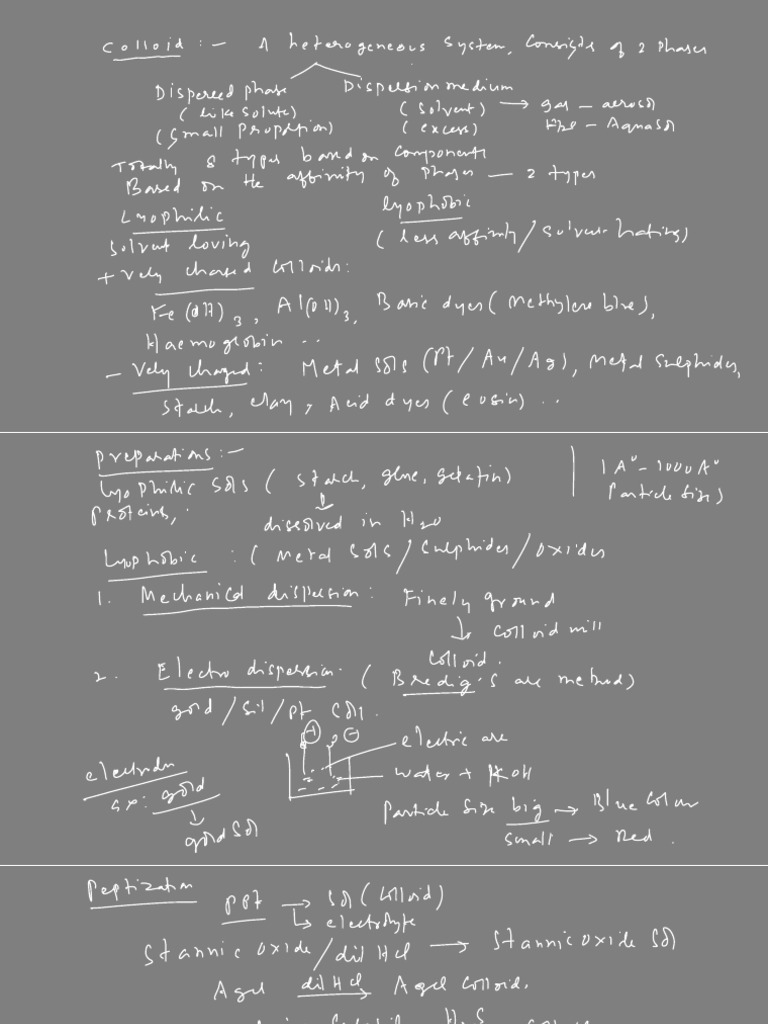 Colloid :- A heterogeneous system, consists of 2 phases
Dispersed phase Dispersion medium
(like solute) (solvent) → gas - aerosol
(small proportion) (excess) H2O - Aquasol
Totally 8 types based on components
Based on the affinity of phases - 2 types
Lyophilic lyophobic
solvent loving (less affinity/solvent-hating)
+ vely charged colloids:
Fe(OH)3, Al(OH)3, Basic dyes (Methylene blue),
Haemoglobin ..
- vely charged: Metal sols (Pt/Au/Ag), Metal sulphides,
Starch, clay, Acid dyes (eosin) ..
Preparations :-
lyophilic sols (starch, glue, gelatin) 1A° - 1000A°
proteins, Particle size)
↓
dissolved in H2O
Lyophobic : (Metal sols/sulphides/oxides
1. Mechanical dispersion: Finely ground
↓ colloid mill
colloid.
2. Electro dispersion. (Bredig's arc method)
gold/Sil/pt sol.
+ -
electric arc
electrodes water + KOH
ex: gold
↓
gold sol
Particle size big → Blue colour
small → Red.
Peptization
PPt → Sol (colloid)
↳ electrolyte
Stannic oxide/dil HCl → Stannic oxide sol
Agcl dil HCl → Agcl colloid.
H2S